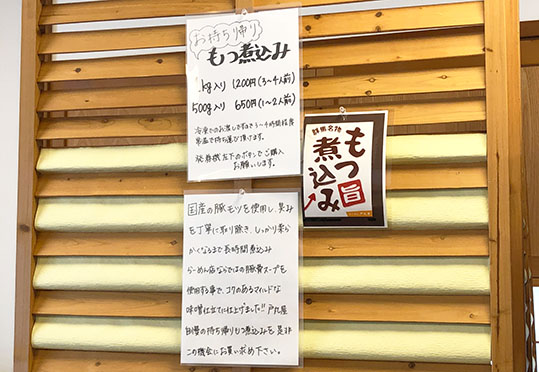 お持ち帰り
もつ煮込み
1kg入り 1200円(3〜4人前)
500g入り 650円(1〜2人前)
冷凍でのお渡しですので3〜4時間程度
常温で持ち運び頂けます。
発券機左下のボタンでご購入
お願いします。
群馬名物
もつ
煮込み
旨
国産の豚モツを使用し、臭み
を丁寧に取り除き、しっかり柔ら
かくなるまで長時間煮込み
らーめん店ならではの豚骨スープを
使用する事で、コクのあるマイルドな
味噌仕立てに仕上げました!!
自慢の持ち帰りもつ煮込みを是非
この機会にお買い求め下さい。